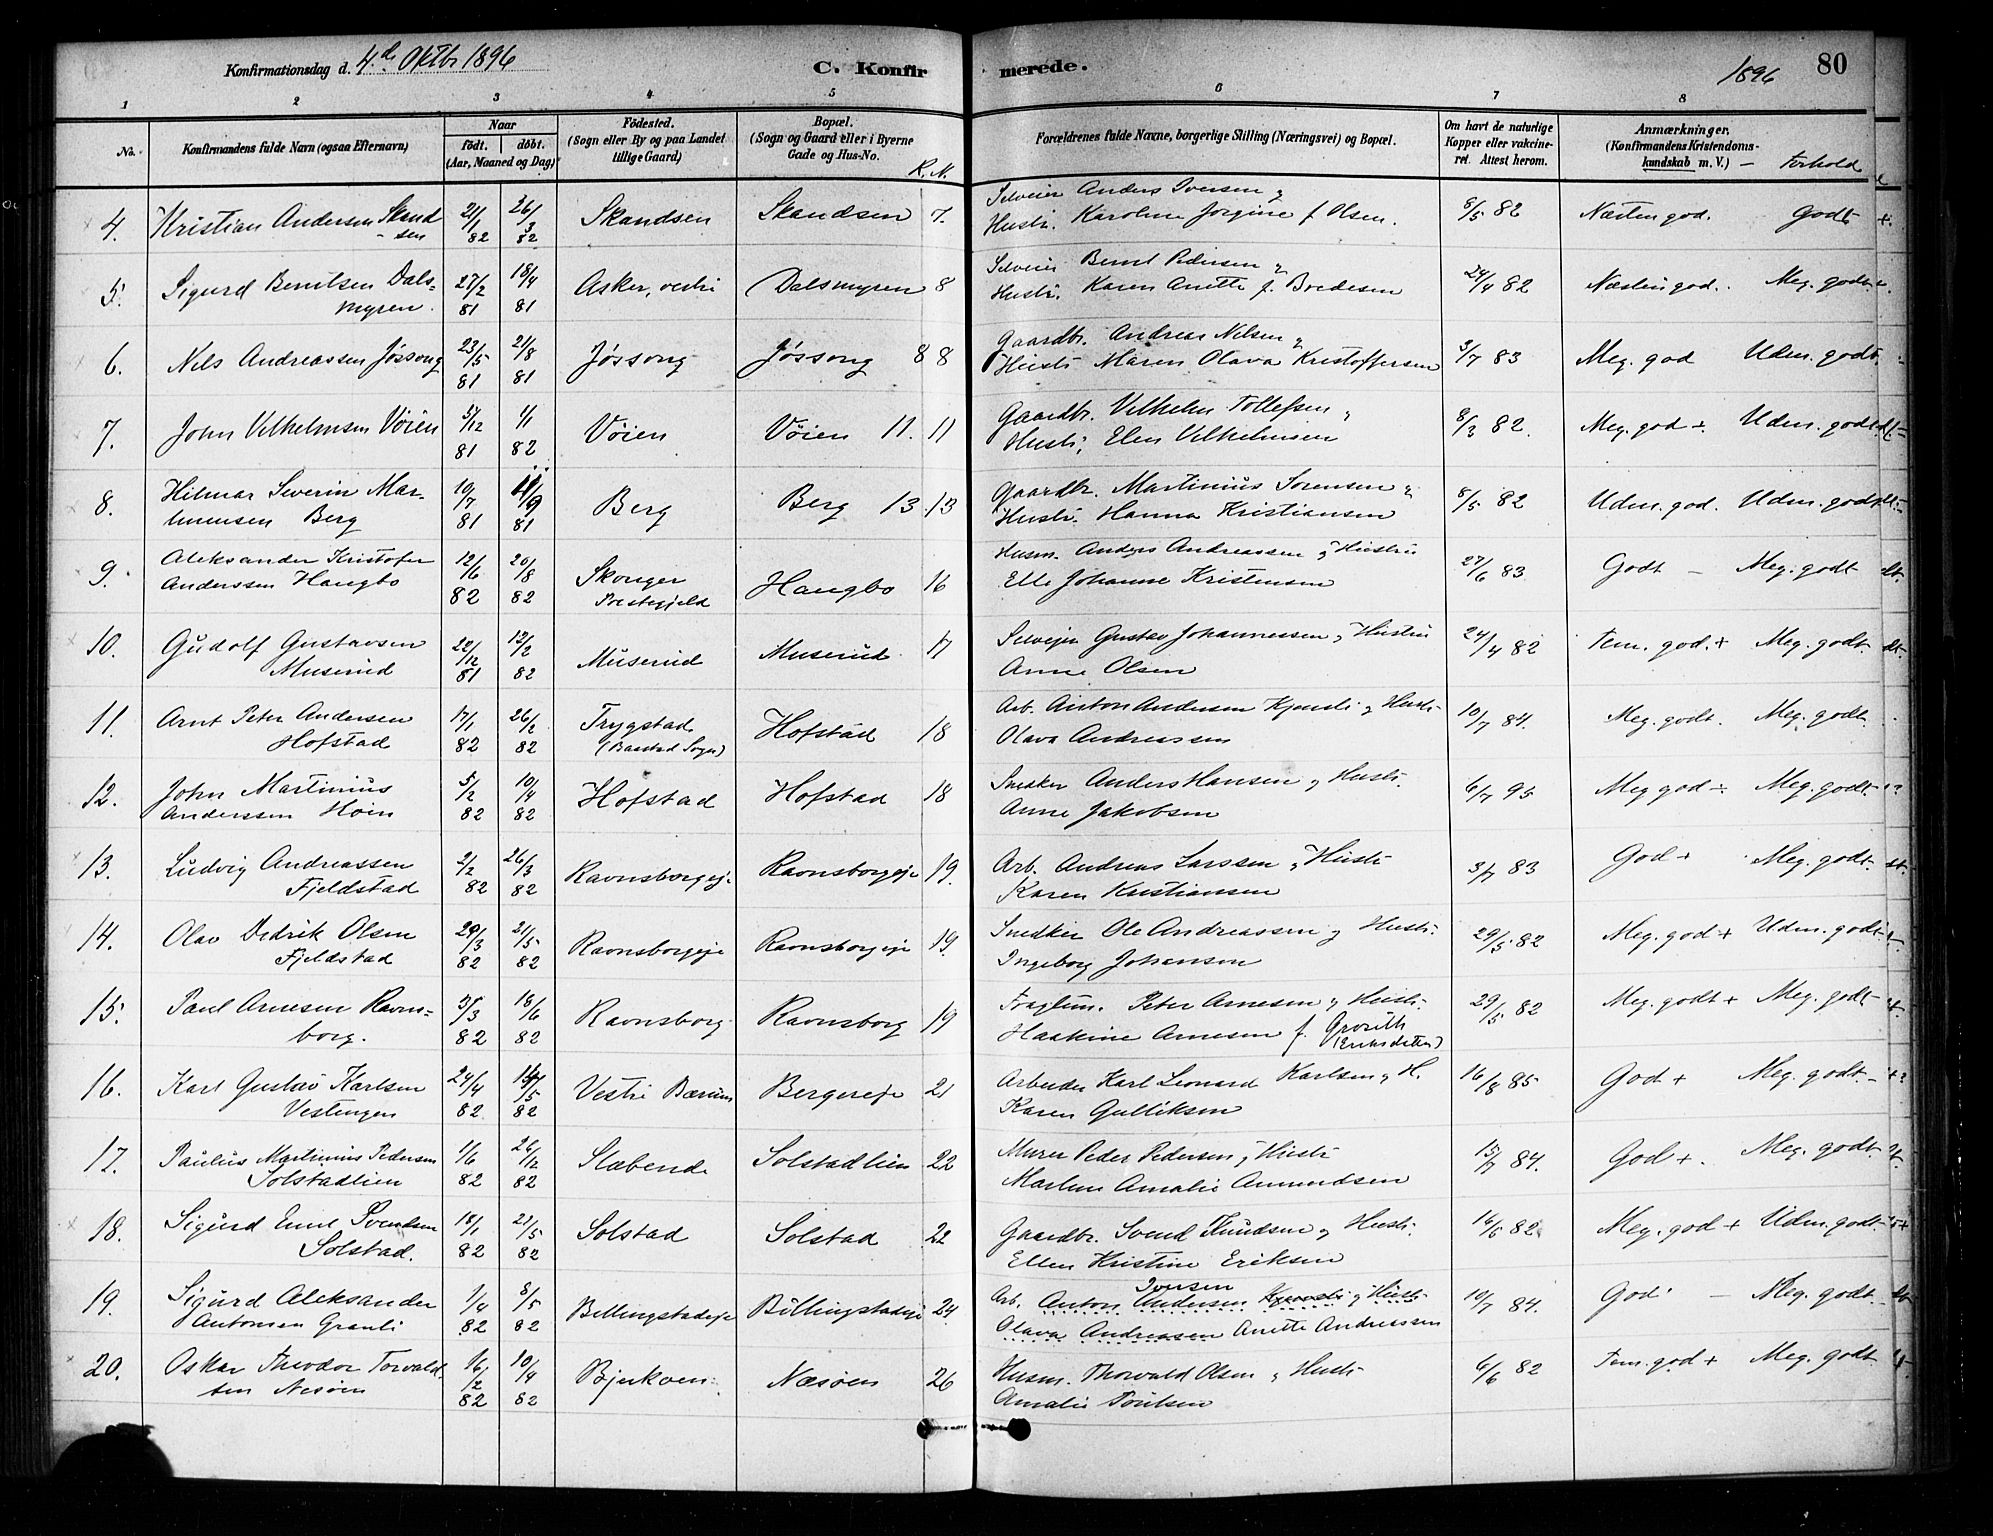 Konfirmationsdag d. 4de Oktbr 1896 C. Konfirmerede. 1896 80
1 2 3 4 5 6 7 8
No. Konfirmandens fulde Navn (ogsaa Efternavn) Naar født. døbt. (Aar, Maaned og Dag) Fødested. (Sogn eller By og paa Landet tillige Gaard) Bopæl. (Sogn og Gaard eller i Byerne Gade og Hus-No. R. N. Forældrenes fulde Navne, borgerlige Stilling (Næringsvei) og Bopæl. Om havt de naturlige Kopper eller vakcineret. Attest herom. Anmærkninger. (Konfirmandens Kristendomskundskab m. V.) — Forhold
4. Kristian Andersen Skandsen 21/1 82 26/3 82 Skandsen Skandsen 7. Selveier Anders Iversen og
Hustr. Karoline Jorgine f. Olsen. 8/5 82 Næsten god. Godt
5. Sigurd Berntsen Dalsmyren. 27/2 81 18/4 81 Asker, vestre Dalsmyren 8 Selveier Bernt Pedersen og
Hustr. Karen Anette f. Bredesen 24/4 82 Næsten god. Meg. godt.
6. Nils Andreassen Jøssong 23/5 81 21/8 81 Jøssong Jøssong 8 8 Gaardbr. Andreas Nilsen og
Hustr. Maren Olava Kristoffersen 3/7 83 Meg. god Udm. godt.
7. John Vilhelmsen Vøien 5/12 81 1/1 82 Vøien Vøien 11. 11 Gaardbr. Vilhelm Tollefsen og
Hustr. Elen Vilhelmsen 8/3 82. Meg. god +. Udm. godt
8. Hilmar Severin Martinusen Berg 10/7 81 11/9 81 Berg Berg 13. 13 Gaardbr. Martinius Sørensen og
Hustr. Hanna Kristiansen 8/5 82 Udm. god. Udm. godt
9. Aleksander Kristofer
Anderssen Hangbo 12/6 82 20/8 82 Skouger Prestegjeld Hangbo 16 Husm. Anders Andreassen og Hustru
Elle Johanne Kristensen 27/6 83 Godt — Meg. godt
10. Gudolf Gustavsen
Muserud 22/12 81 12/2 82 Muserud Muserud. 17 Selvejer Gustav Johannessen og Hustru
Anne Olsen 24/4 82 Tem. god. + Meg. godt.
11. Arnt Peter Andersen
Hofstad 17/1 82 26/2 82 Trygstad (Baastad Sogn) Hofstad 18 Arb. Anton Andersen Kjensli og Hustr.
Olava Andreassen 10/7 84. Meg. godt. Meg. godt.
12. John Martinius
Anderssen Høin 5/2 82 10/4 82 Hofstad Hofstad 18 Snedker Anders Hansen og Hustr.
Anne Jakobsen 6/7 95 Meg god ÷ Meg. godt.
13. Ludvig Andreassen
Fjeldstad 2/2 82 26/3 82 Ravnsborgeje Ravnsborgeje 19. Arb. Andreas Larssen og Hustr.
Karen Kristiansen 3/7 83 God + Meg. godt.
14. Olav Dedrik Olsen
Fjeldstad 29/3 82 21/5 82 Ravnsborgeje Ravnsborgeje 19. Snedker Ole Andreassen og Hustr.
Ingeborg Johansen 29/5 82 Meg. god + Udm. godt.
15. Paul Arnesen Ravnsborg. 3/3 82 18/6 82 Ravnsborg Ravnsborg 19 Peter Arnesen og Hustr.
Haakine Arnesen f. 29/5 82 Meg. godt + Meg. godt
16. Karl Gustav Karlsen
Vestengen 24/4 82 14/5 82 Vestre Bærum Bergereje 21 Arbeider Karl Leonard Karlsen og H.
Karen Gulliksen 16/8 85 God + Meg. godt.
17. Paulus Martinius Pedersen
Solstadlien 1/6 82 26/12 82 Slæbende Solstadlien 22 Murer Peder Pedersen og Hustr.
Amalie Amundsen 15/7 84. God +. Meg. godt.
18. Sigurd Emil Svendsen
Solstad. 18/1 82 21/5 82 Solstad Solstad 22 Gaardbr. Svend Knudsen og Hustr.
Ellen Kristine Eriksen 16/6 82 Meg. god + Udm. godt
19. Sigurd Aleksander
Antonsen Granli 1/4 82 8/5 82 Billingstadeje Billingstadeje 24 Arb. Anton Andersen Iversen Kjensli og Hustr.
Olava Andreasen Anette Andreassen 10/7 84. God — Meg. godt.
20. Oskar Theodor Torvaldsen Nesøen 16/2 82 10/4 82 Bjerkøen Næsøen 26 Husm. Thorvald Olsen og Hustr.
Amalie Poulsen 6/6 82 Tem. god + Meg. godt